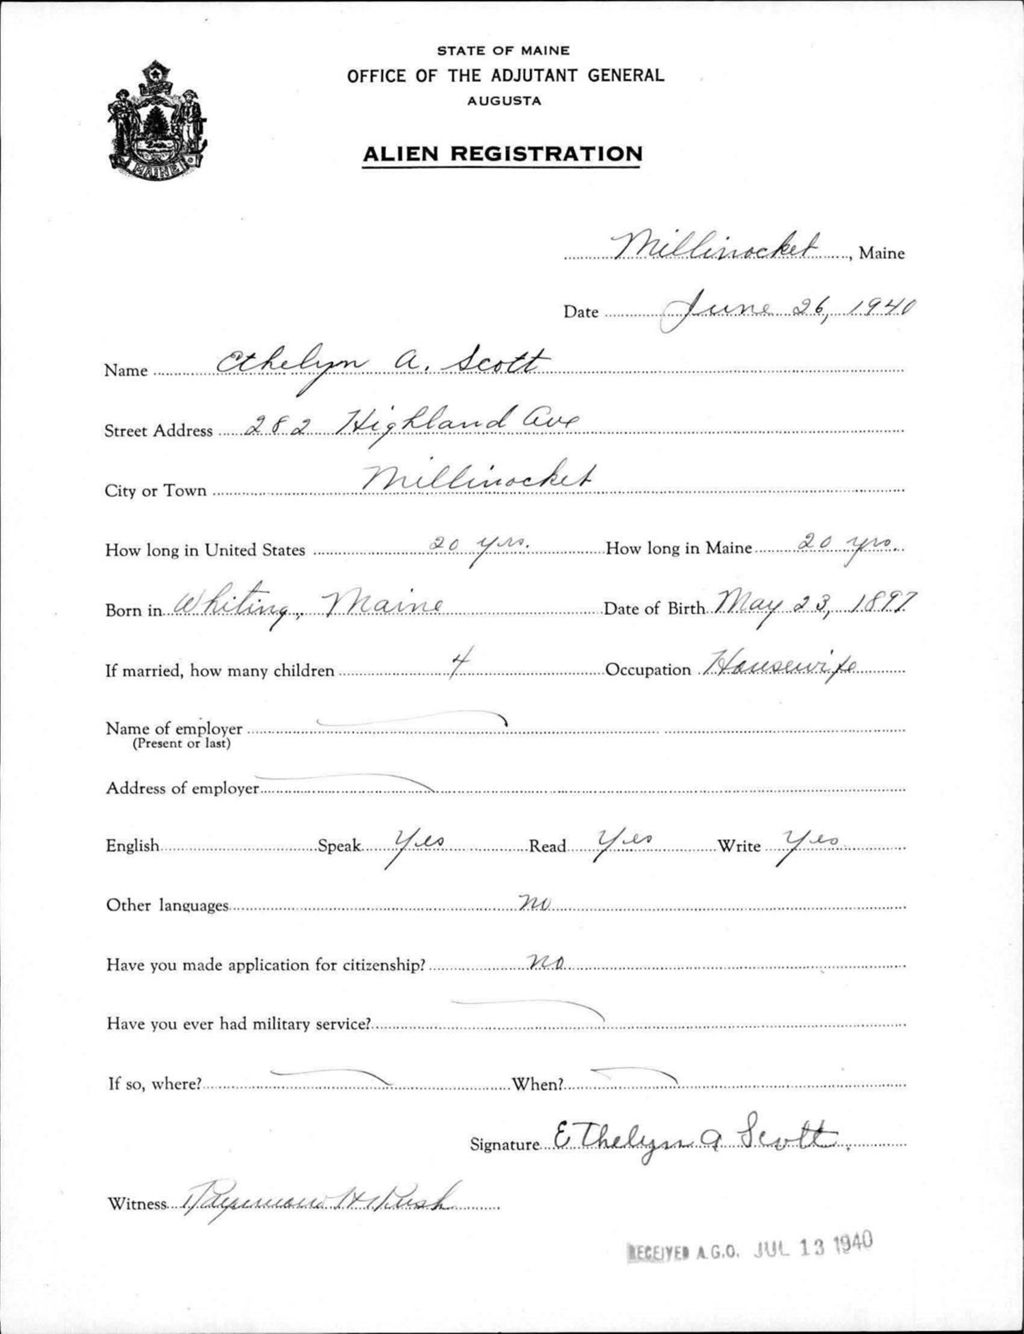 STATE OF MAINE
OFFICE OF THE ADJUTANT GENERAL
AUGUSTA
ALIEN REGISTRATION
MAINE
Millinocket, Maine
Date June 26, 1940
Name Ethelyn A. Scott
Street Address 282 Highland Ave
City or Town Millinocket
How long in United States 20 yrs. How long in Maine 20 yrs.
Born in Whiting, Maine Date of Birth May 23, 1897
If married, how many children 4 Occupation Housewife
Name of employer
(Present or last)
Address of employer
English Speak Yes Read Yes Write Yes
Other languages no
Have you made application for citizenship? no
Have you ever had military service?
If so, where? When?
Signature Ethelyn A Scott.
Witness H
RECEIVED A.G.O. JUL 13 1940